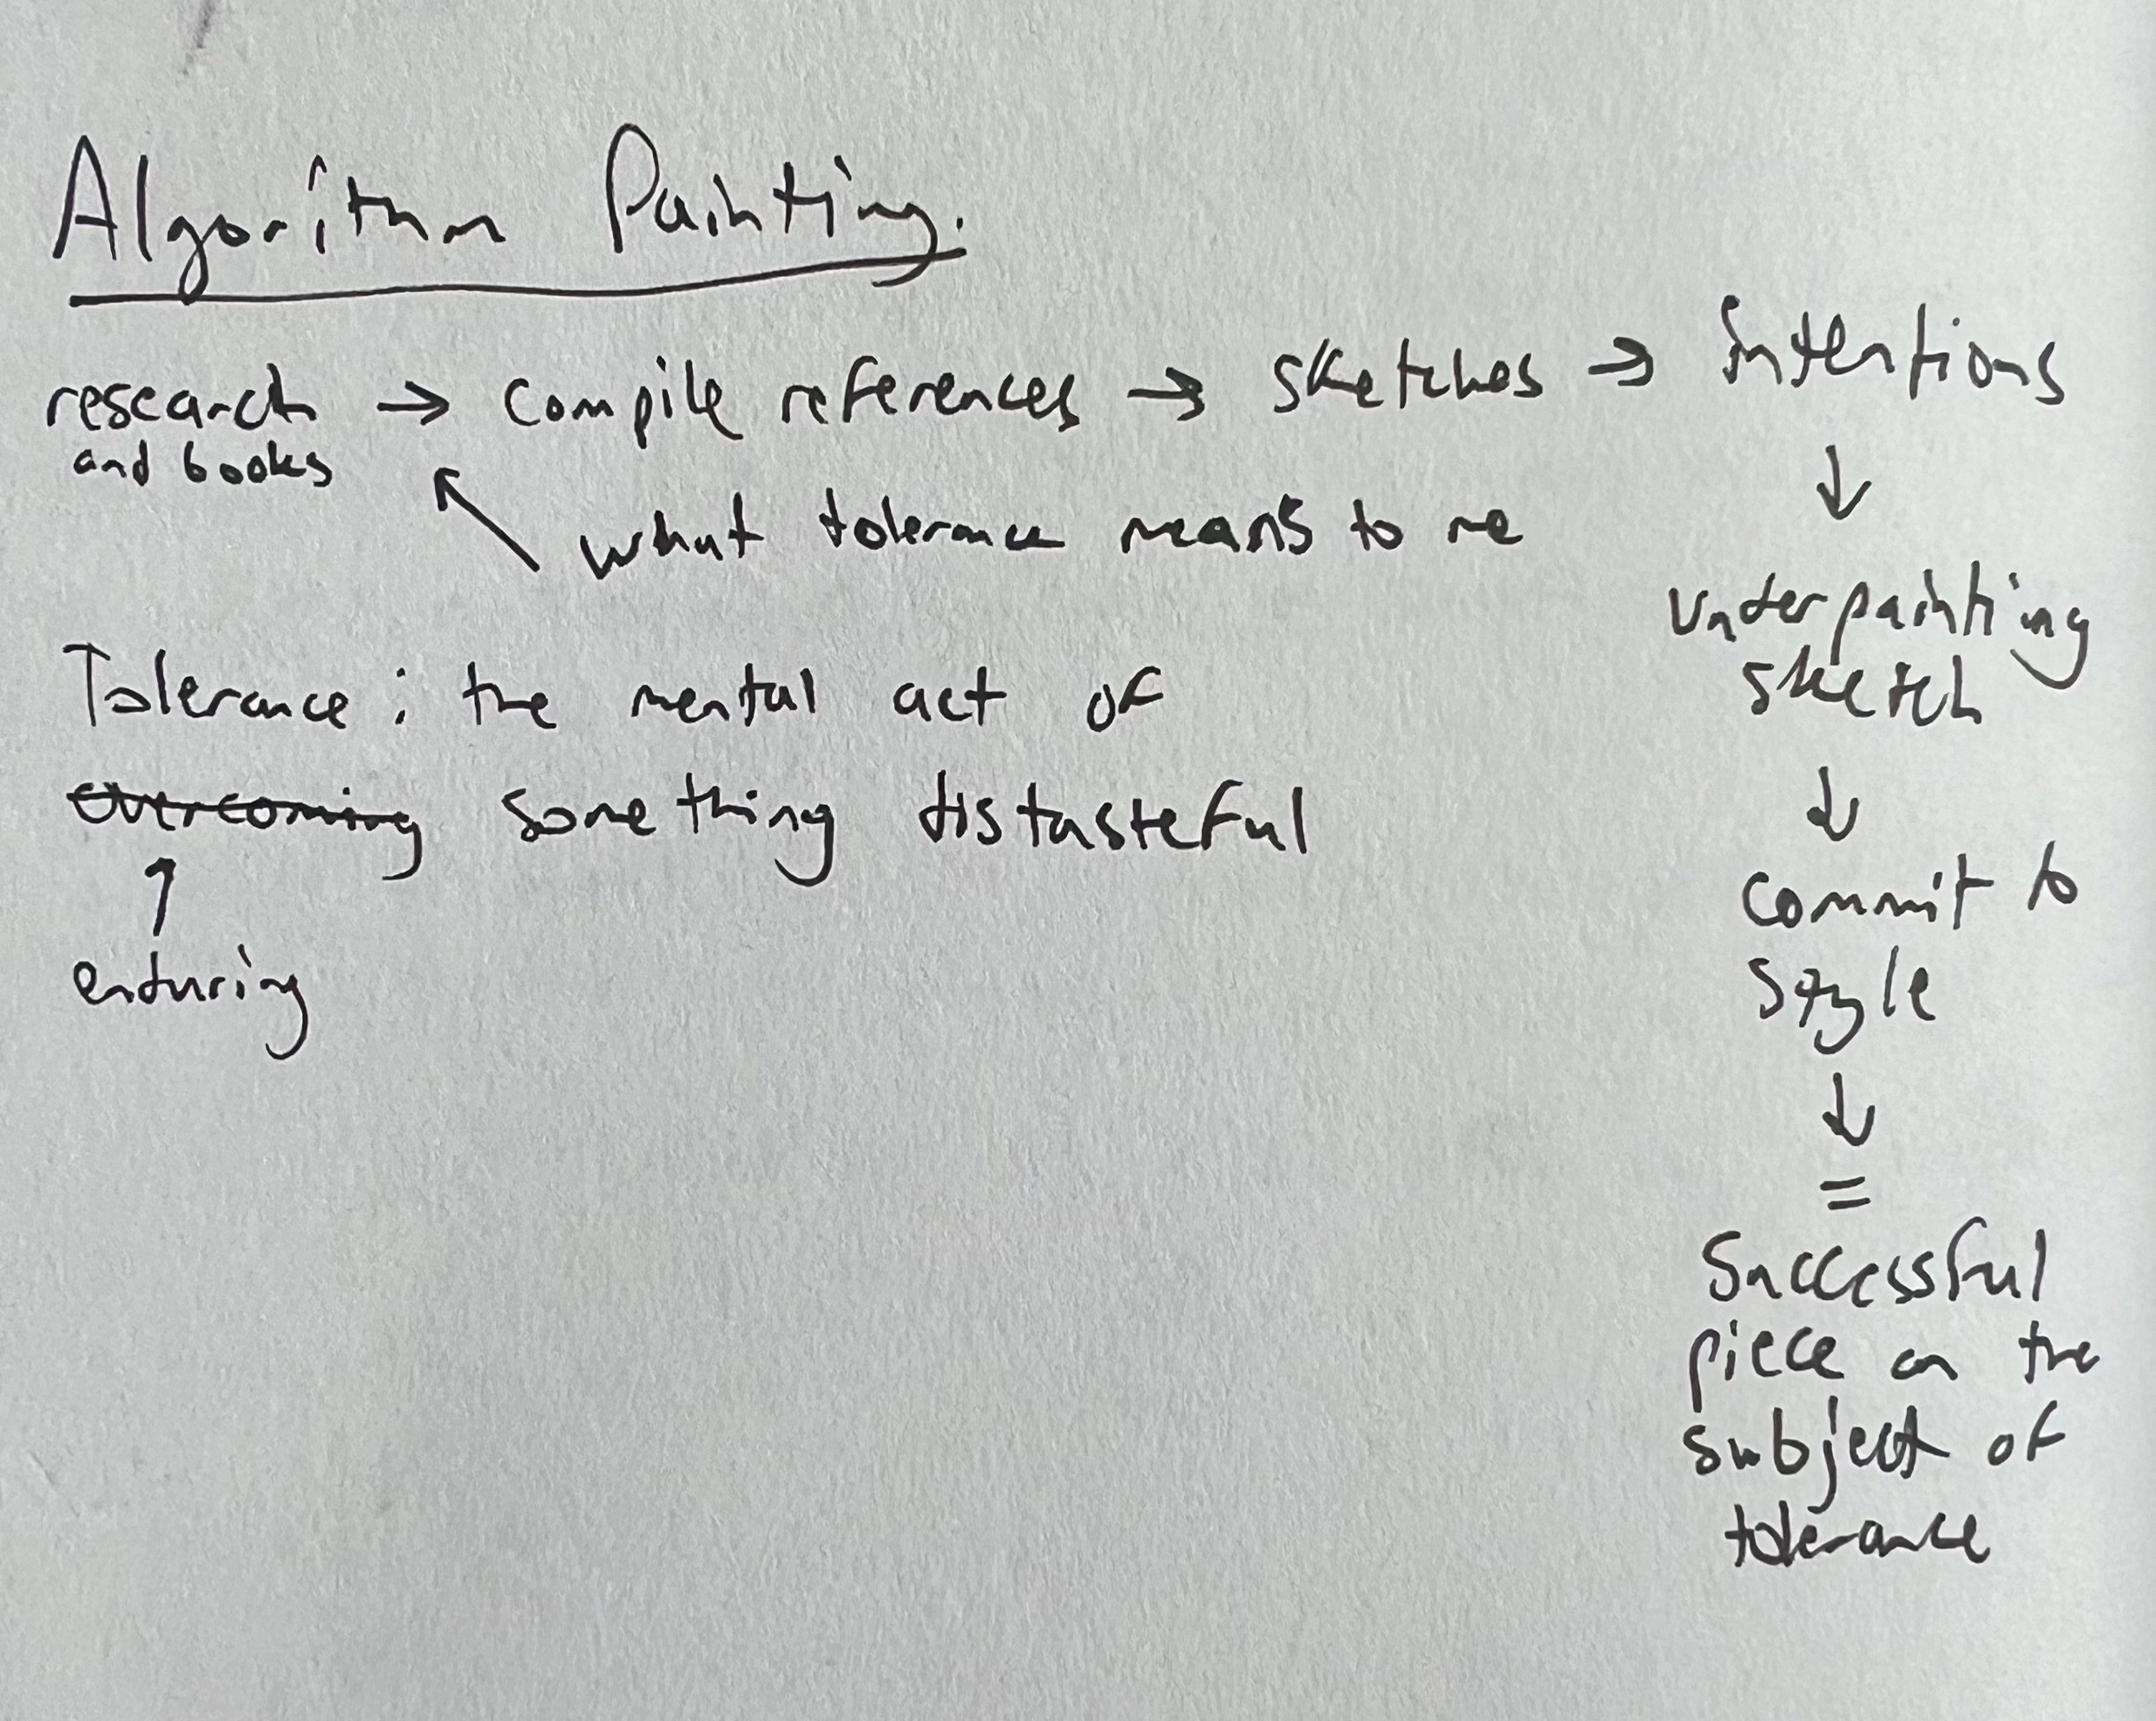 Algorithm Painting.
research → compile references → sketches → intentions
and books
↖ what tolerance means to me
↓
underpainting
sketch
↓
commit to
style
↓
=
Successful
piece on the
subject of
tolerance
Tolerance : the mental act of
overcoming something distasteful
↑
enduring